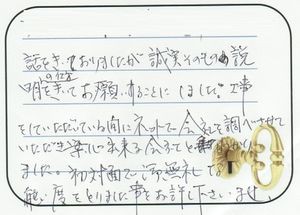 話をきいておりましたが誠実そのもの説
明をきいてお願いすることにしました。工事
をしていただいている間にネットで会社を調べさせて
いただき楽に出来る会社と
ました。初対面でご無礼な
態度をとりました事をお許し下さいませ。